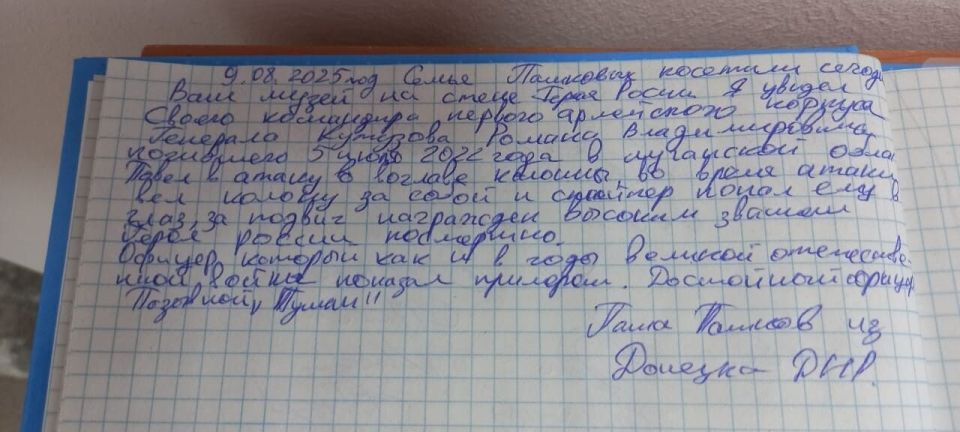 9.08.2025 год Семья Пашковых посетили сегод
Ваш музей на стенде Героя Росии Я увидел
Своего командира первого армейского корпуса
Генерала Кутузова Романа Владимировича
погибшего 5 июня 2022 года в луганской обла
Повел в атаку в воглаве колонны, во время атаки
вел колону за собой и снайпер попал ему в
глаз, за подвиг награжден высоким званием
Героя россии посмертно.
Офицер который как и в годы великой отечестве-
нной войны показал примером. Достойный офицер
Позывной "Туман"
Паша Пашков из
Донецка ДНР.